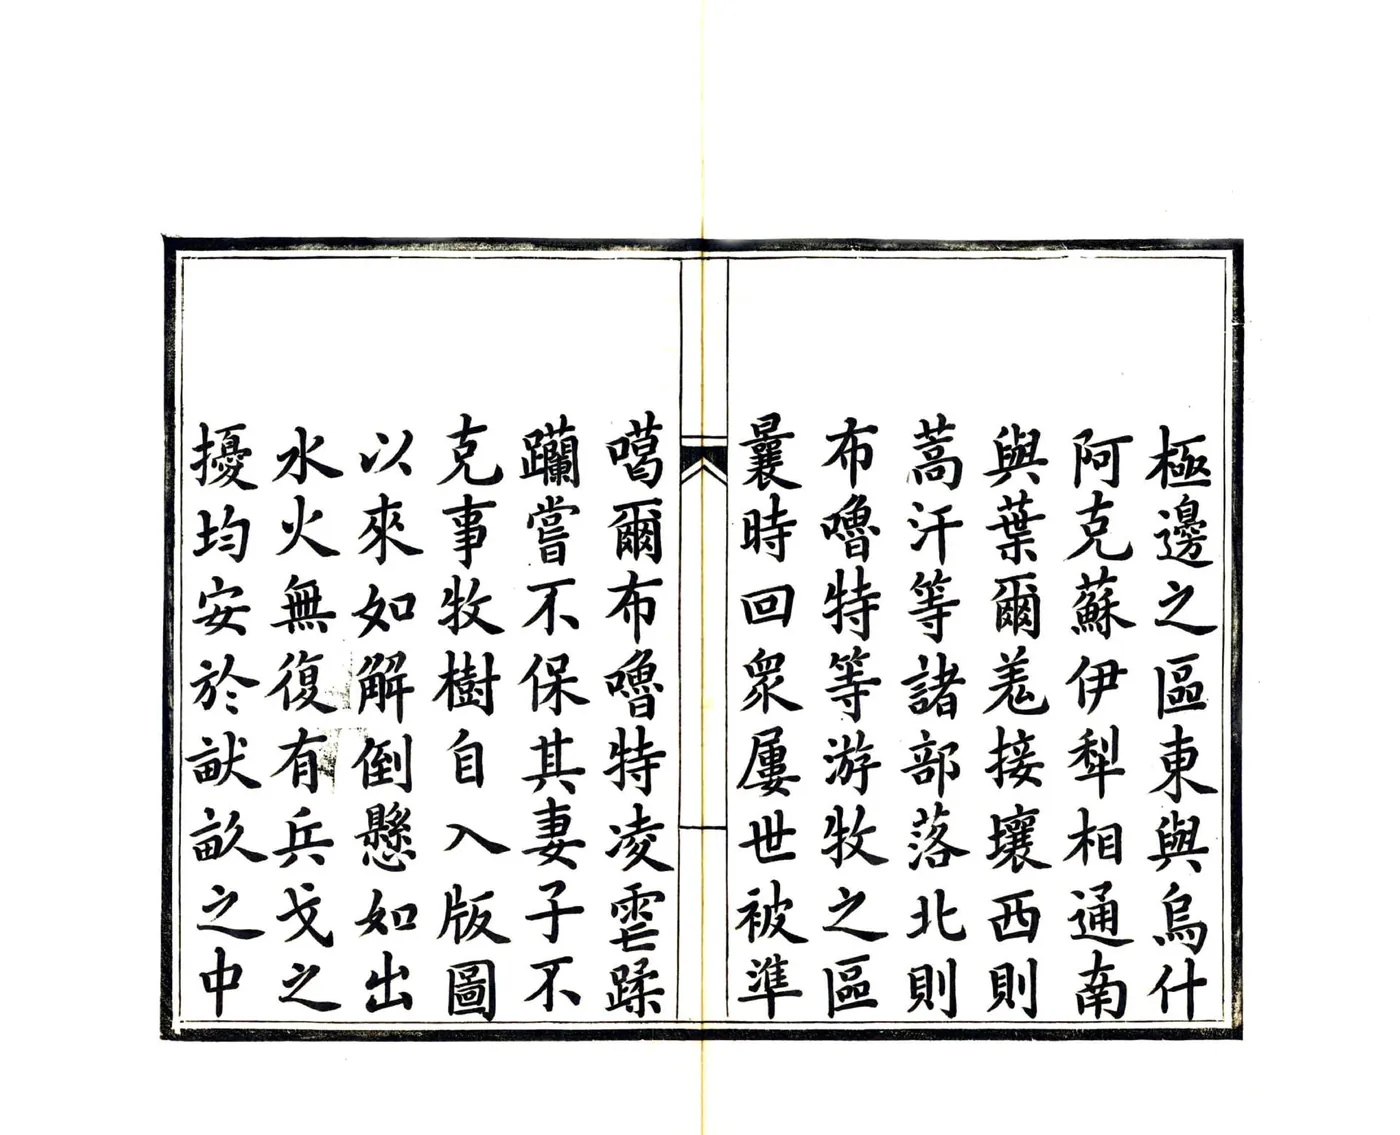 極邊之區東與烏什
阿克蘇伊犁相通南
與葉爾羗接壤西則
蒿汗等諸部落北則
布嚕特等游牧之區
曩時回眾屢世被準
噶爾布嚕特凌虐蹂
躝嘗不保其妻子不
克事牧樹自入版圖
以來如解倒懸如出
水火無復有兵戈之
擾均安於畎畝之中